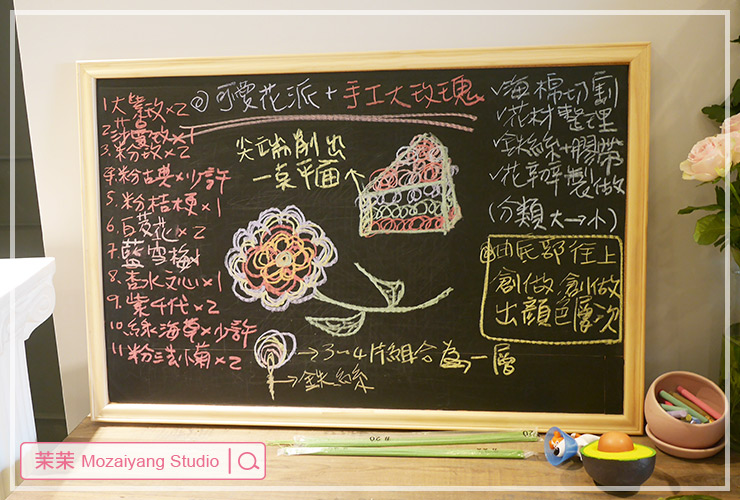 可愛花派+手工大玫瑰
1.大紫玫×2
3.粉玫×2
4.粉古典×少許
5.粉桔梗×1
6.白菱花×2
7.藍雪梅1
8.香水文心×1
9.紫千代×2
10.綠海草×少許
11.粉法小菊×2
尖端削出
一菜平面
→3~4片組合為→一層
→鐵絲
✓海棉切割
✓花材整理
✓鐵絲+膠帶
✓花瓣製做
(分類大→小)
由底部往上
創做.創做
出顏色層次
#20
茉茉 Mozaiyang Studio